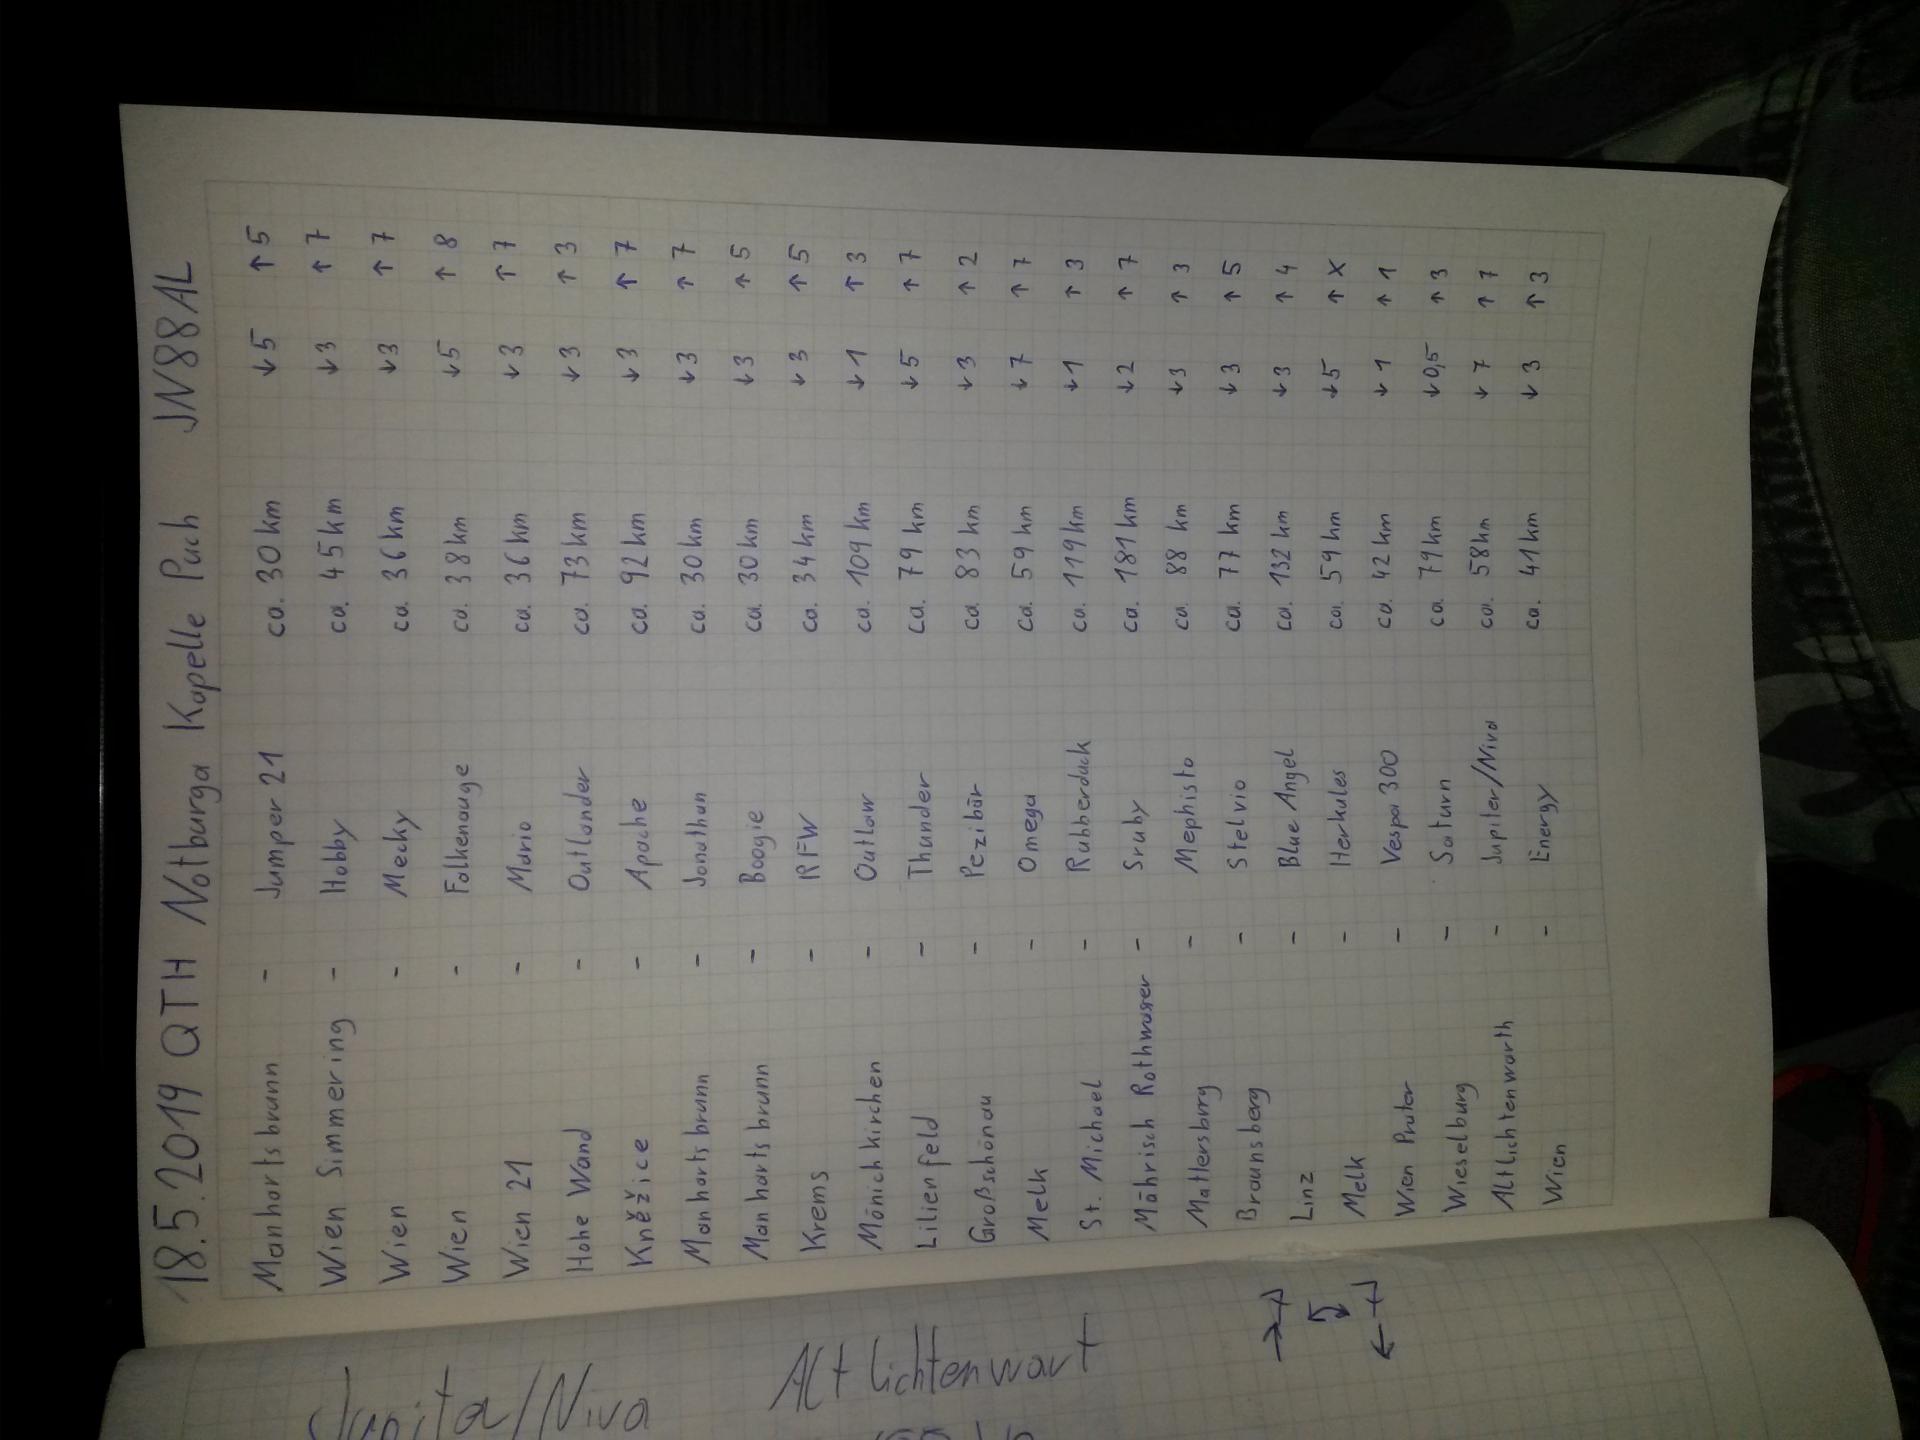 18.5.2019 QTH Notburga Kapelle Puch JN88AL
Manhartsbrunn - Jumper 21 ca. 30 km ↓5 ↑5
Wien Simmering - Hobby ca. 45 km ↓3 ↑7
Wien - Mecky ca. 36 km ↓3 ↑7
Wien - Falkenauge ca. 38 km ↓5 ↑8
Wien 21 - Mario ca. 36 km ↓3 ↑7
Hohe Wand - Outlander ca. 73 km ↓3 ↑3
Kněžice - Apache ca. 92 km ↓3 ↑7
Manhartsbrunn - Jonathan ca. 30 km ↓3 ↑7
Manhartsbrunn - Boogie ca. 30 km ↓3 ↑5
Krems - RFW ca. 34 km ↓3 ↑5
Mönichkirchen - Outlaw ca. 109 km ↓1 ↑3
Lilienfeld - Thunder ca. 79 km ↓5 ↑7
Großschönau - Pezibär ca. 83 km ↓3 ↑2
Melk - Omega ca. 59 km ↓7 ↑7
St. Michael - Rubberduck ca. 119 km ↓1 ↑3
Mährisch Rothwasser - Sruby ca. 181 km ↓2 ↑7
Mattersburg - Mephisto ca. 88 km ↓3 ↑3
Braunsberg - Stelvio ca. 77 km ↓3 ↑5
Linz - Blue Angel ca. 132 km ↓3 ↑4
Melk - Herkules ca. 59 km ↓5 ↑X
Wien Prater - Vespa 300 ca. 42 km ↓1 ↑1
Wieselburg - Saturn ca. 79 km ↓0,5 ↑3
Altlichtenwarth - Jupiter/Niva ca. 58 km ↓7 ↑7
Wien - Energy ca. 41 km ↓3 ↑3
Jupita/Niva
Altlichtenwart